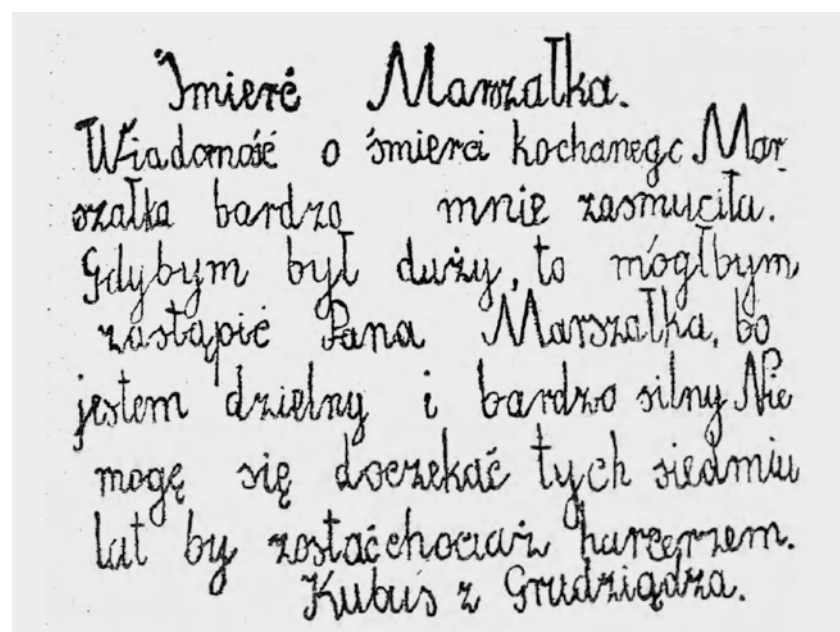 Śmierć Marszałka.
Wiadomość o śmierci kochanego Mar
szałka bardzo mnie zasmuciła.
Gdybym był duży, to mógłbym
zastąpić Pana Marszałka, bo
jestem dzielny i bardzo silny Nie
mogę się doczekać tych siedmiu
lat by zostać chociaż harcerzem.
Kubuś z Grudziądza.